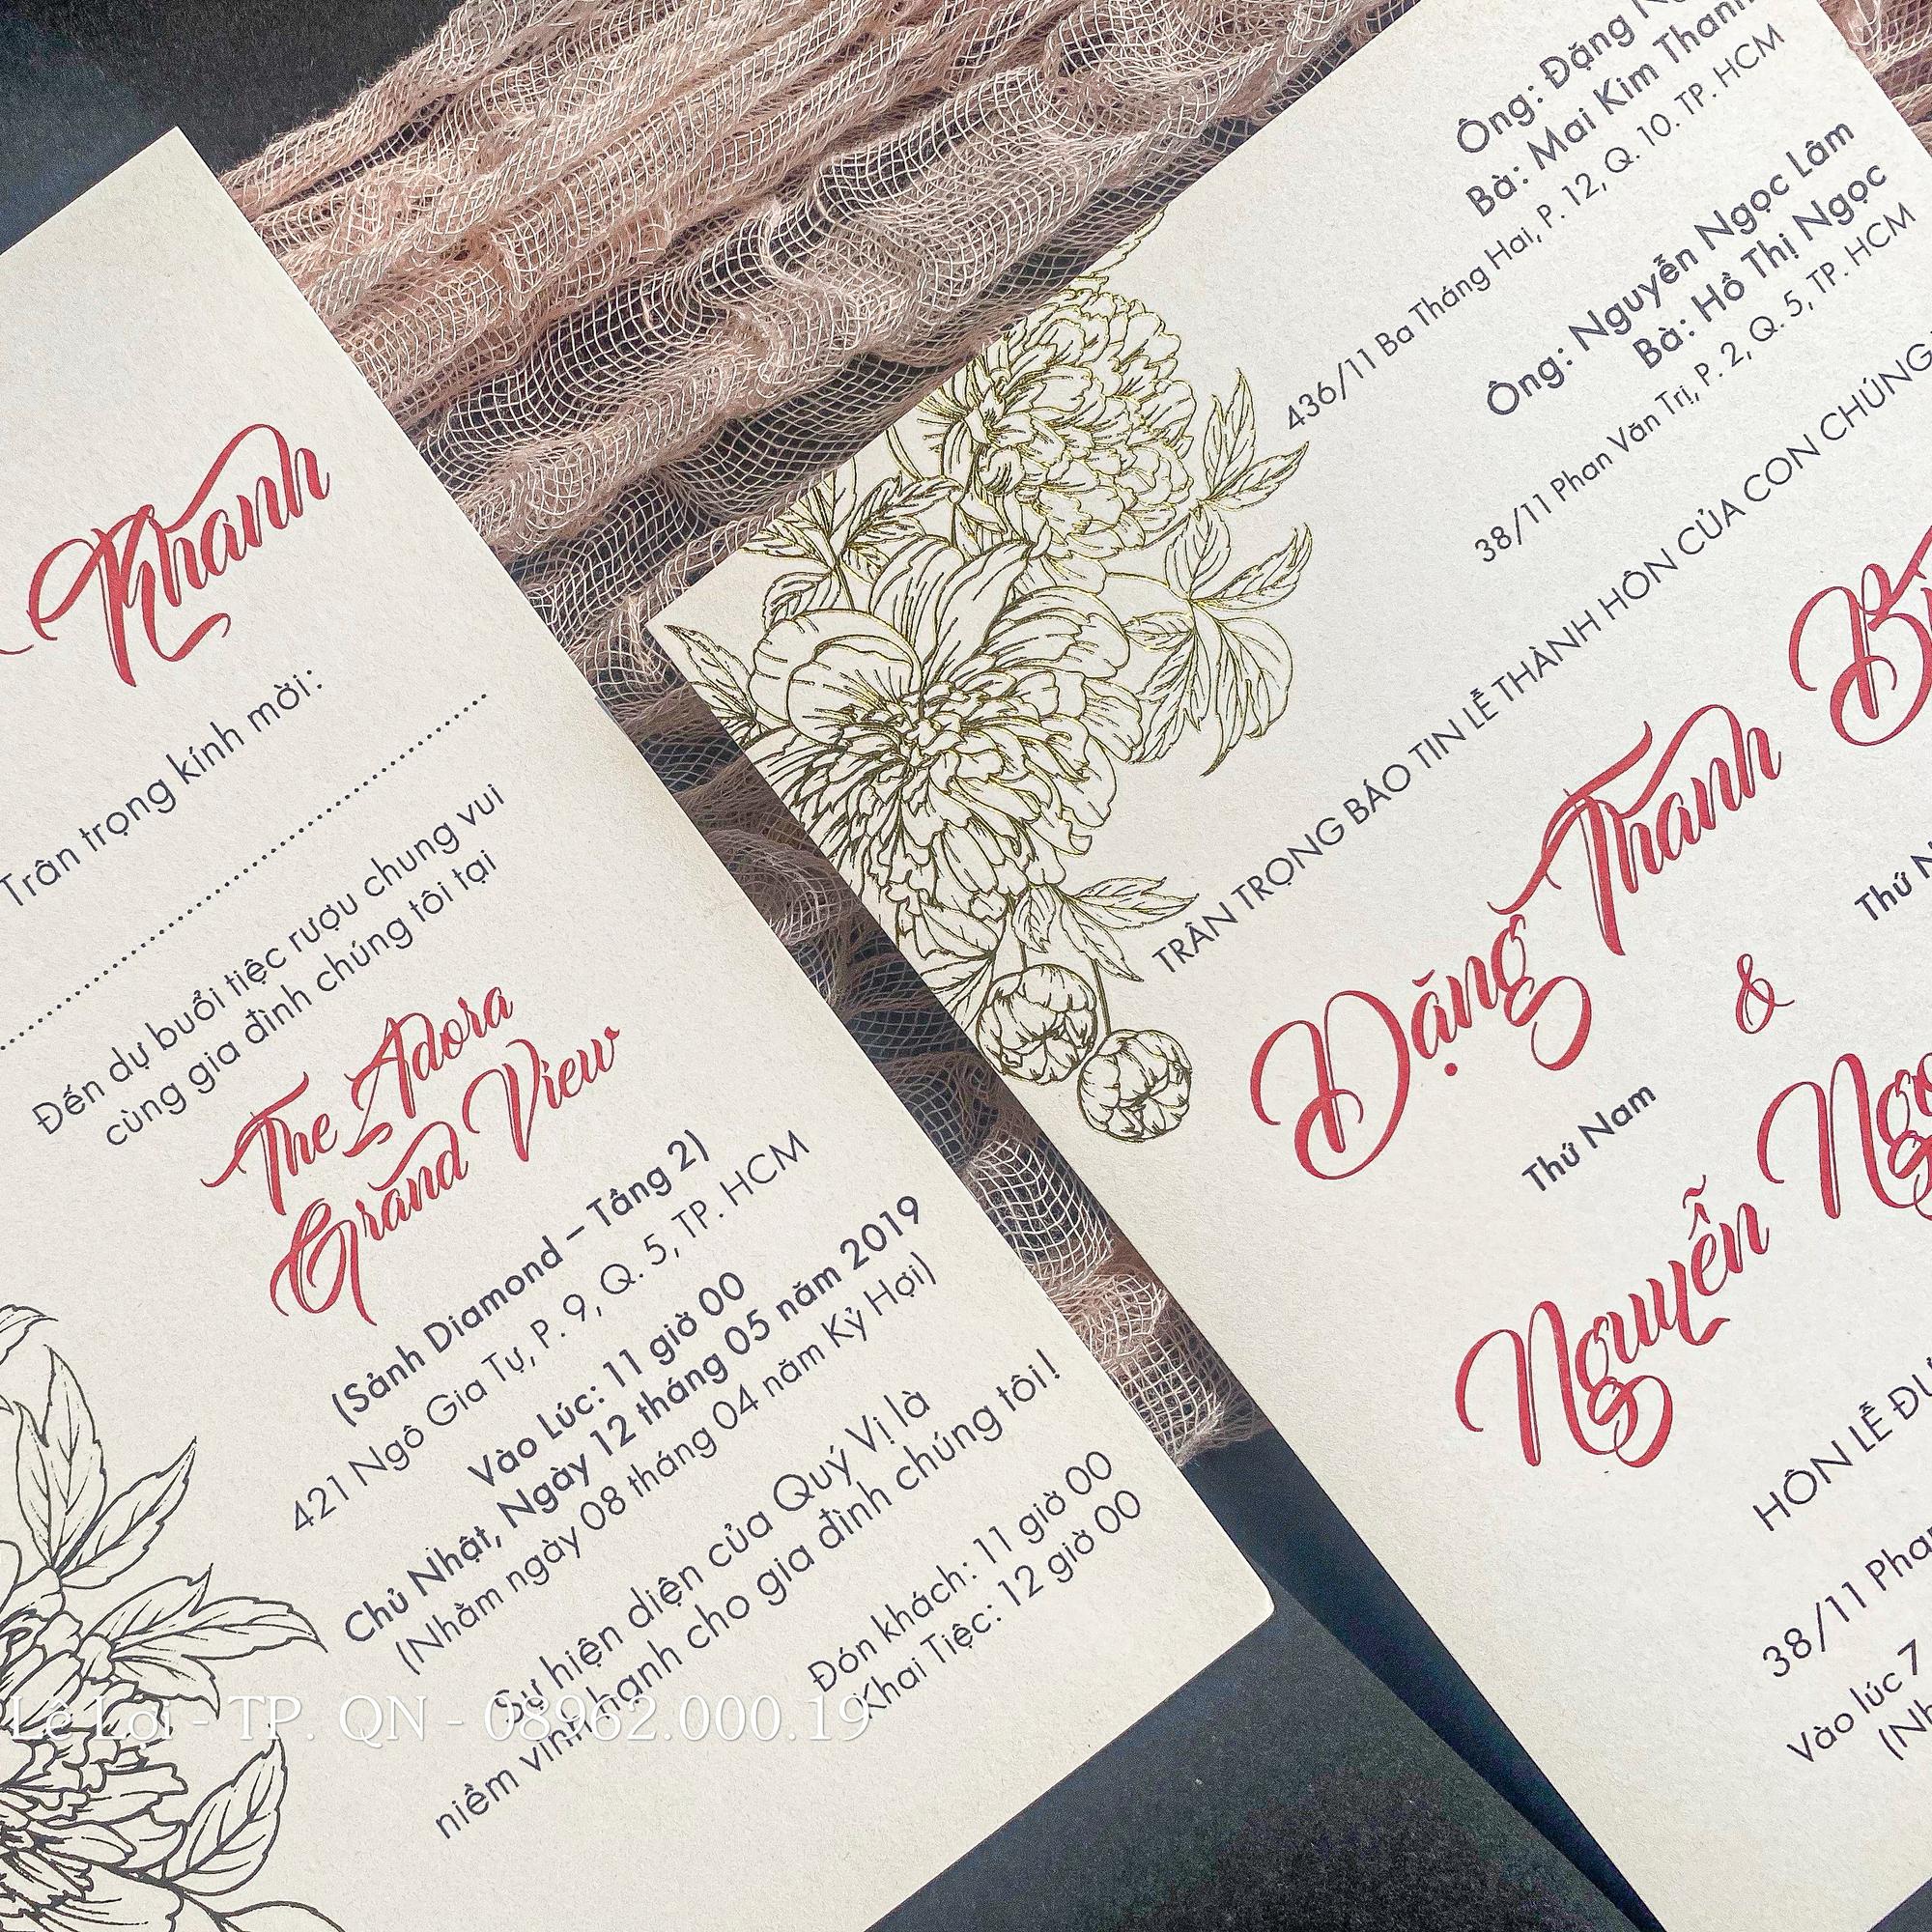 Khanh
Trân trọng kính mời:
Đến dự buổi tiệc rượu chung vui
cùng gia đình chúng tôi tại
The Adora
Grand View
(Sảnh Diamond – Tầng 2)
421 Ngô Gia Tự, P. 9, Q. 5, TP. HCM
Vào Lúc: 11 giờ 00
Chủ Nhật, Ngày 12 tháng 05 năm 2019
(Nhằm ngày 08 tháng 04 năm Kỷ Hợi)
Sự hiện diện của Quý Vị là
niềm vinh hạnh cho gia đình chúng tôi!
Đón khách: 11 giờ 00
Khai Tiệc: 12 giờ 00
Ông: Đặng
Bà: Mai Kim Thanh
436/11 Ba Tháng Hai, P. 12, Q. 10. TP. HCM
Ông: Nguyễn Ngọc Lâm
Bà: Hồ Thị Ngọc
38/11 Phan Văn Trị, P. 2, Q. 5, TP. HCM
TRÂN TRỌNG BÁO TIN LỄ THÀNH HÔN CỦA CON CHÚNG
Đặng Thanh
Thứ Nam
&
Nguyễn
Thứ
HÔN LỄ
38/11
Vào lúc 7
Lê Lợi - TP. QN - 08962.000.19